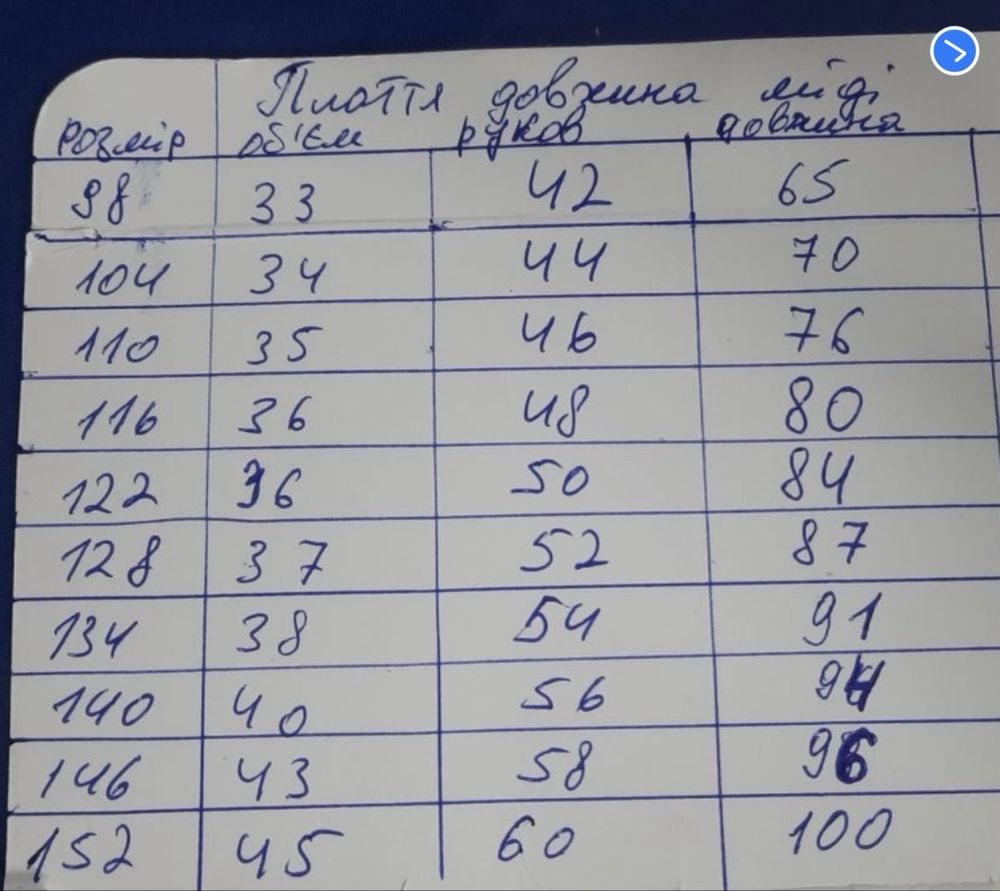 Плаття довжина міді
розмір об'єм руков довжина
98 33 42 65
104 34 44 70
110 35 46 76
116 36 48 80
122 36 50 84
128 37 52 87
134 38 54 91
140 40 56 94
146 43 58 96
152 45 60 100